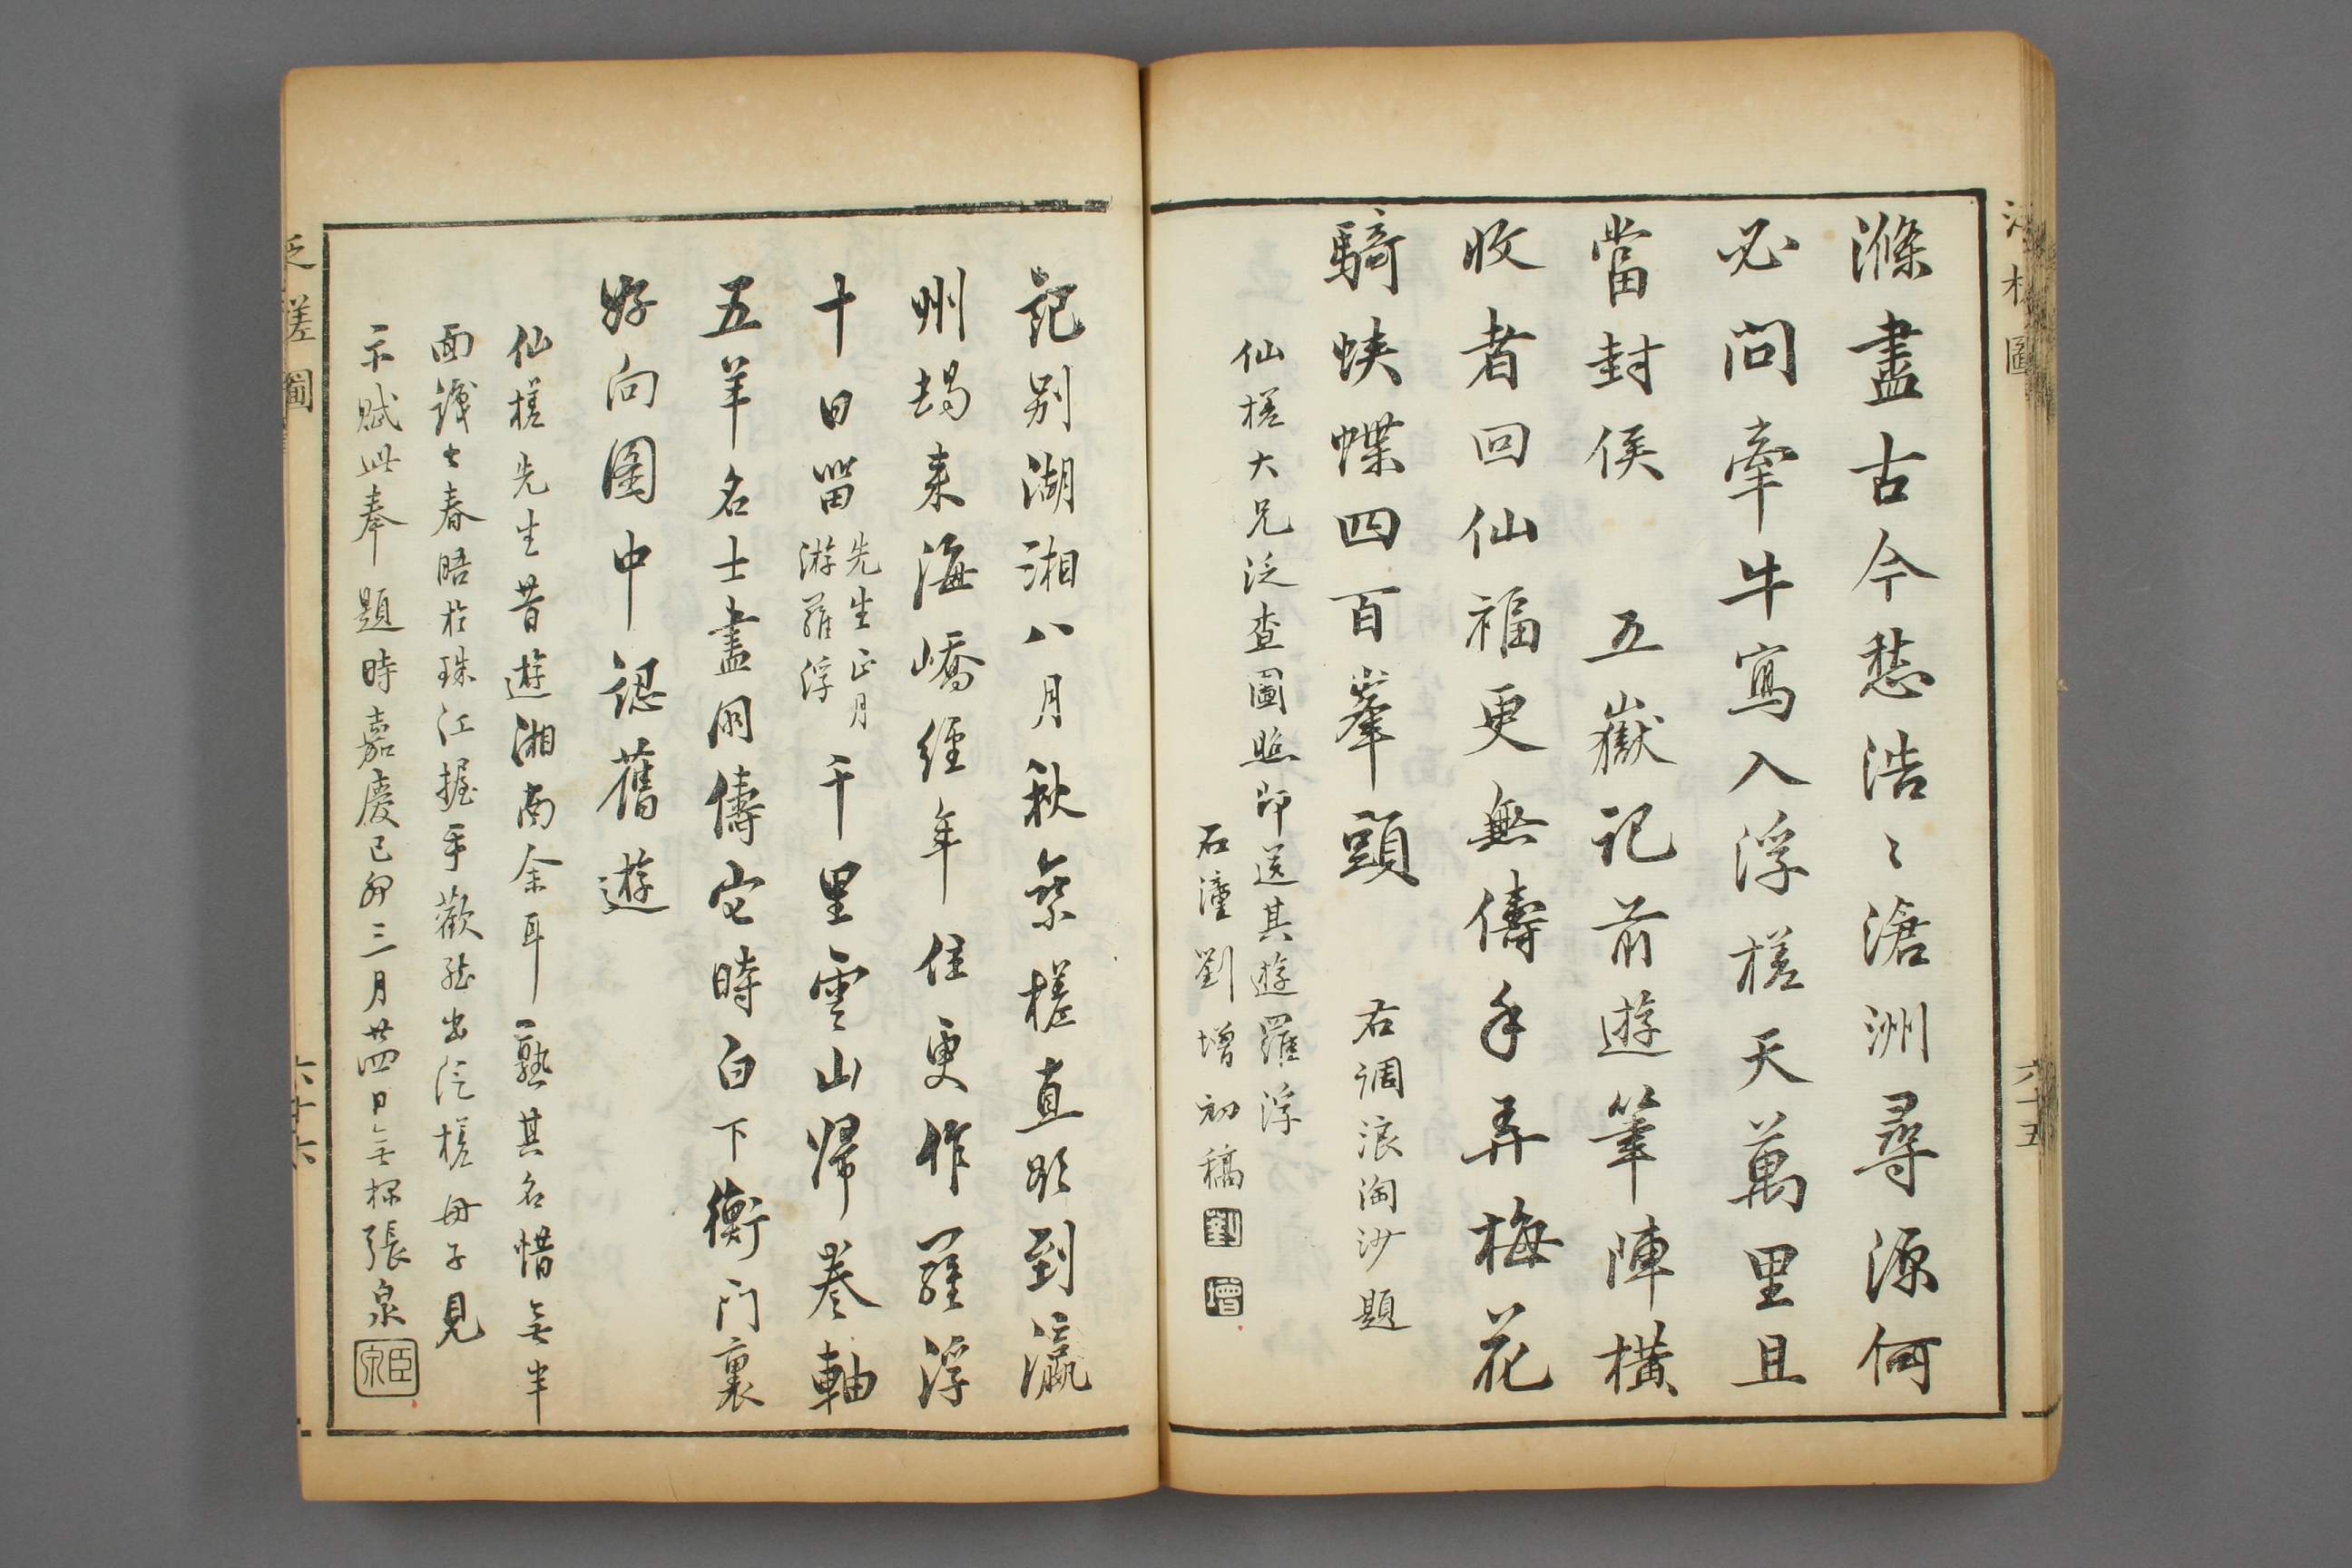 滌盡古今愁浩〻滄洲尋源何
必問牽牛寫入浮槎天萬里且
當封侯　五嶽記前遊筆陣橫
收者回仙福更無儔手弄梅花
騎蛺蝶四百峯頭　右調浪淘沙題
仙槎大兄泛查圖照即送其遊羅浮
石潼劉增初稿
劉
增
六十五
記別湖湘八月秋乘槎直欲到瀛
州朅來海嶠經年住更作羅浮
十日留先生正月游羅浮千里雲山歸卷軸
五羊名士盡同儔它時白下衡門裏
好向圖中認舊遊
仙槎先生昔遊湘南余耳熟其名惜無半
面識也春晤於珠江握手歡然出泛槎冊子見
示賦此奉題時嘉慶己卯三月廿四日張泉
臣泉
泛槎圖
六十六